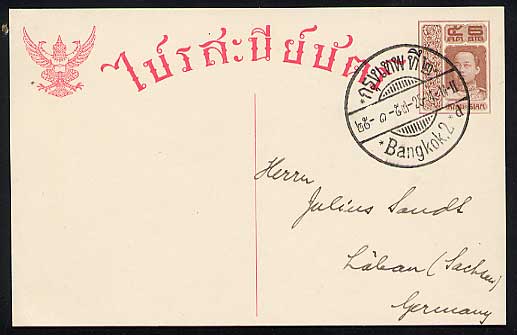 ไปรสะนียบัตร
กรุงเทพฯ ที่ ๒
Bangkok. 2
SIAM
Herrn
Julius Sandt
Löbau (Sachsen)
Germany